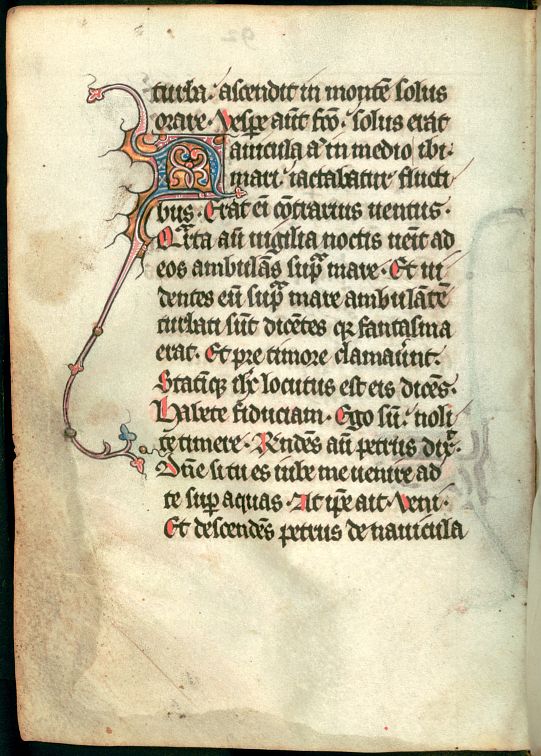 turba. ascendit in montē solus
orare. Vespe aūt fcō. solus erat
Nauicula aū in medio ibi.
mari iactabatur flucti
bus. Erat eī cōtrarius uentus.
Qrta aū uigilia noctis uenit ad
eos ambulās supra mare. Et ui
dentes eū supra mare ambulātē
turbati sūt dicētes qꝫ fantasma
erat. Et pre timore clamauert.
Statīqꝫ ihc locutus est eis dicēs.
Habete fiduciam. Ego sū. noli
te timere. Rndēs aū petrus dix.
Dn̄e si tu es iube me uenire ad
te sup aquas. At ipe ait. Veni.
Et descendēs petrus de nauicula